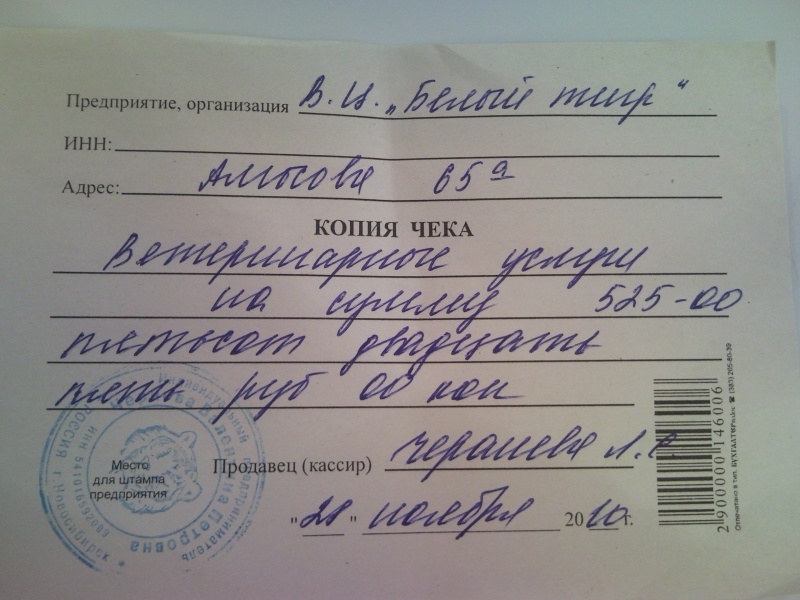 Предприятие, организация В.Ц. „Белый тигр"
ИНН:
Адрес: 65 а
КОПИЯ ЧЕКА
Ветеринарные услуги
на сумму 525-00
пятьсот двадцать
пять руб 00 коп
Продавец (кассир) Л.С.
Место
для штампа
предприятия
"28" ноября 2010 г.
Индивидуальный предприниматель
РОССИЯ г. Новосибирск *
ИНН
Петровна
2 900000 146006
Отпечатано в тип. БУХГАЛТЕР ☎ (383) 205-80-39